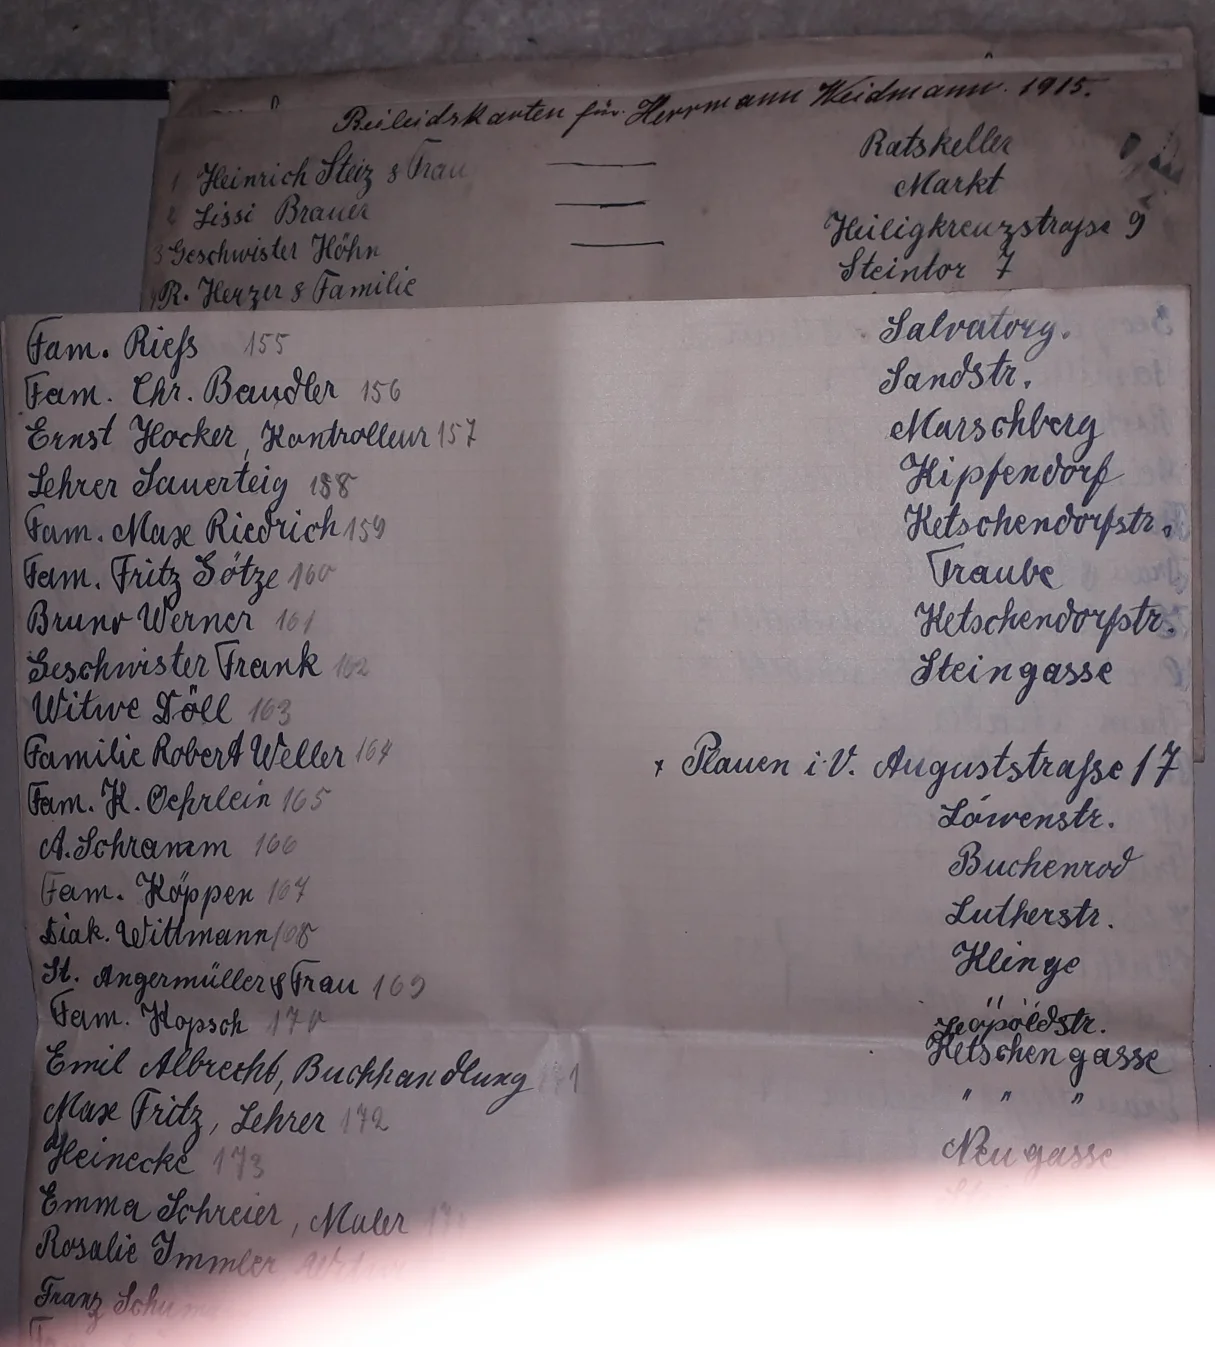 Beileidskarten für Herrmann Weidmann. 1915.
1 Heinrich Steiz & Frau — Ratskeller
2 Lissi Brauer — Markt
3 Geschwister Höhn — Heiligkreuzstraße 9
R. Herzer & Familie Steintor 7
Fam. Rieß 155 Salvatorg.
Fam. Chr. Baudler 156 Sandstr.
Ernst Hocker, Kontrolleur 157 Marschberg
Lehrer Sauerteig 158 Kipfendorf
Fam. Max Riedrich 159 Ketschendorfstr.
Fam. Fritz Götze 160 Traube
Bruno Werner 161 Ketschendorfstr.
Geschwister Frank 162 Steingasse
Witwe Döll 163
Familie Robert Weller 164 Plauen i.V. Auguststraße 17
Fam. H. Oehrlein 165 Löwenstr.
A. Schramm 166 Buchenrod
Fam. Köppen 167 Lutherstr.
Diak. Wittmann 168 Klinge
St. Angermüller & Frau 169
Fam. Kopsch 170 Leopoldstr.
Emil Albrecht, Buchhandlung 171 Ketschengasse
Max Fritz, Lehrer 172 " " "
Heinecke 173 Neugasse
Emma Schreier, Maler
Rosalie Immler
Franz